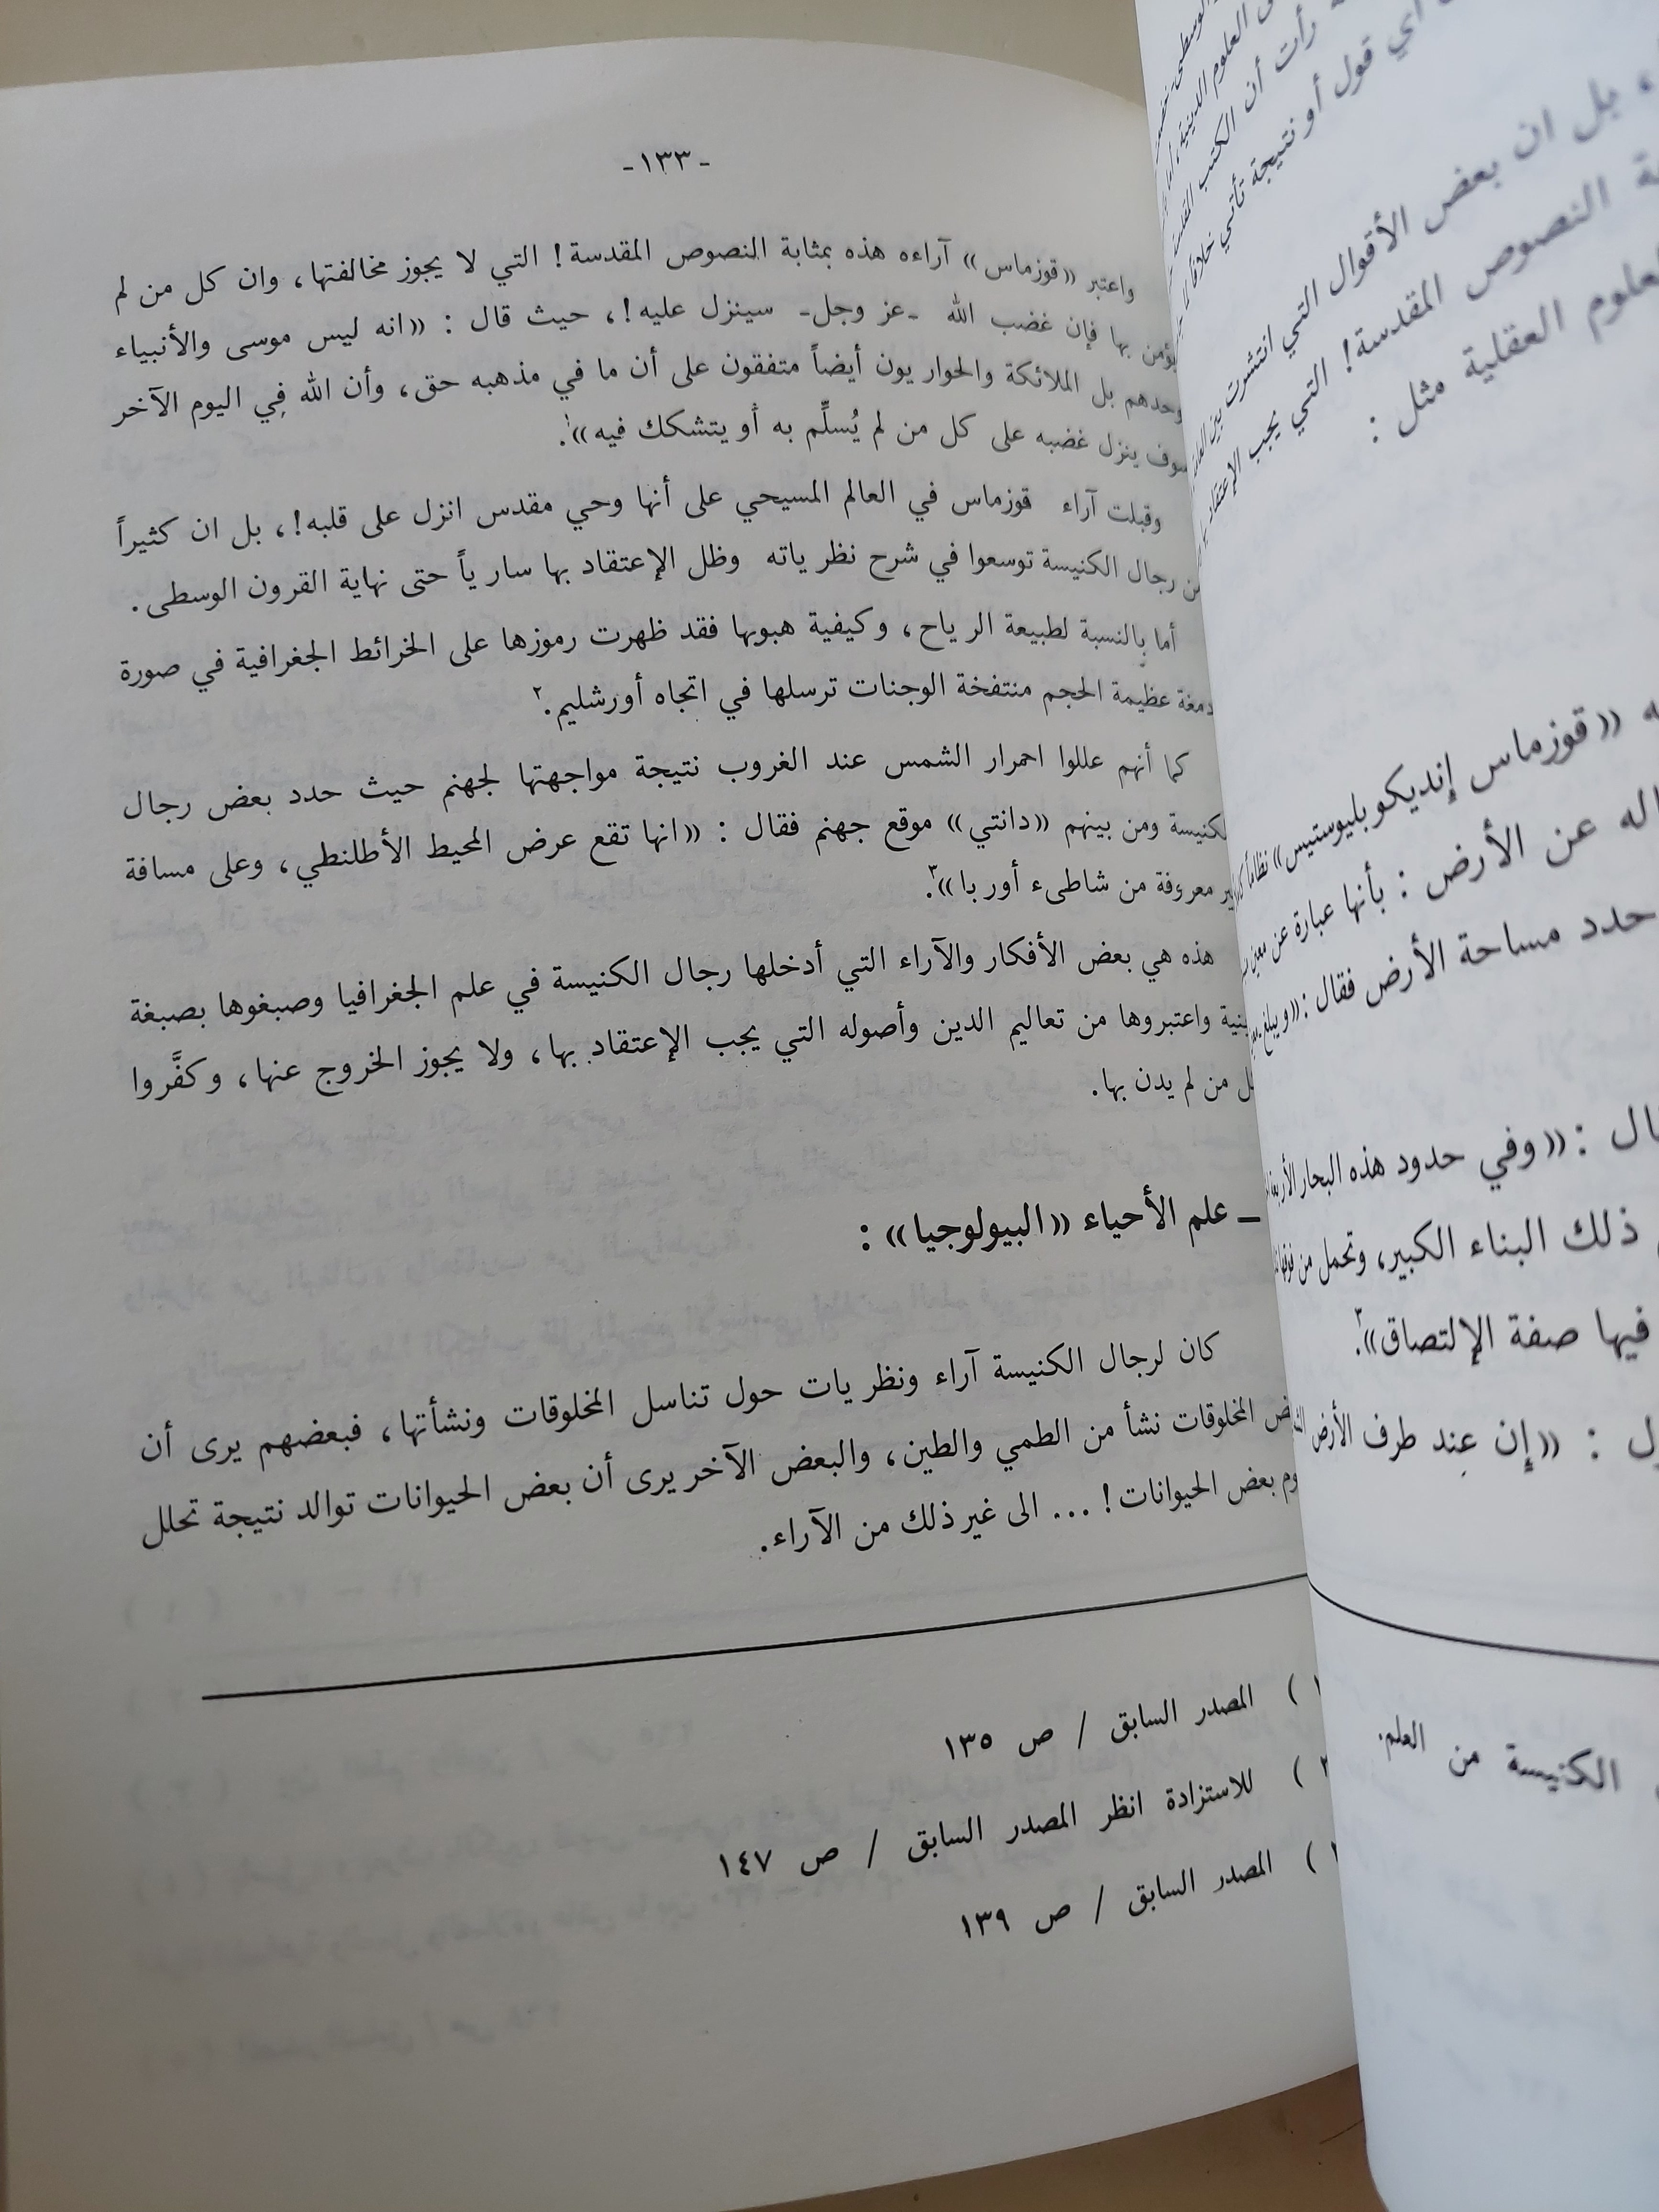 -١٣٣-
واعتبر «قوزماس» آراءه هذه بمثابة النصوص المقدسة! التي لا يجوز مخالفتها، وان كل من لم
بها فإن غضب الله -عز وجل- سينزل عليه!، حيث قال : «انه ليس موسى والأنبياء
وحدهم بل الملائكة والحواريون أيضاً متفقون على أن ما في مذهبه حق، وأن الله في اليوم الآخر
ينزل غضبه على كل من لم يُسلِّم به أو يتشكك فيه»١.
وقبلت آراء قوزماس في العالم المسيحي على أنها وحي مقدس انزل على قلبه!، بل ان كثيراً
رجال الكنيسة توسعوا في شرح نظرياته وظل الإعتقاد بها سارياً حتى نهاية القرون الوسطى.
أما بالنسبة لطبيعة الرياح، وكيفية هبوبها فقد ظهرت رموزها على الخرائط الجغرافية في صورة
عظيمة الحجم منتفخة الوجنات ترسلها في اتجاه أورشليم.٢
كما أنهم عللوا احمرار الشمس عند الغروب نتيجة مواجهتها لجهنم حيث حدد بعض رجال
ومن بينهم «دانتي» موقع جهنم فقال : «انها تقع عرض المحيط الأطلنطي، وعلى مسافة
معروفة من شاطىء أوربا»٣.
هذه هي بعض الأفكار والآراء التي أدخلها رجال الكنيسة في علم الجغرافيا وصبغوها بصبغة
واعتبروها من تعاليم الدين وأصوله التي يجب الإعتقاد بها، ولا يجوز الخروج عنها، وكفَّروا
من لم يدن بها.
ـ علم الأحياء «البيولوجيا» :
كان لرجال الكنيسة آراء ونظريات حول تناسل المخلوقات ونشأتها، فبعضهم يرى أن
المخلوقات نشأ من الطمي والطين، والبعض الآخر يرى أن بعض الحيوانات توالد نتيجة تحلل
بعض الحيوانات! ... الى غير ذلك من الآراء.
) المصدر السابق / ص ١٣٥
) للاستزادة انظر المصدر السابق / ص ١٤٧
) المصدر السابق / ص ١٣٩
رأت أن الكتب
أي قول أو نتيجة تأتي خلافا
، بل ان بعض الأقوال التي انتشرت بين
النصوص المقدسة! التي يجب الإعتقاد
العقلية مثل :
«قوزماس إنديكوبليوستيس» نظاماً
عن الأرض : بأنها عبارة عن
حدد مساحة الأرض فقال : «ويبلغ
: «وفي حدود هذه البحار
ذلك البناء الكبير، وتحمل من فوقها
فيها صفة الإلتصاق»٣.
: «إن عند طرف الأرض
الكنيسة من العلم.